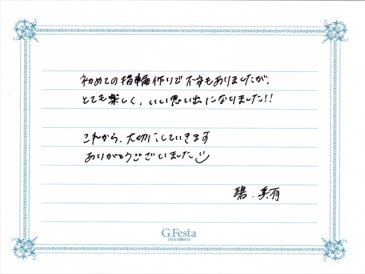 初めての指輪作りで不安もありましたが、
とても楽しく、いい思い出になりました!!
これから、大切にしていきます
ありがとうございました
碧、美有
G.Festa
DIAMOND